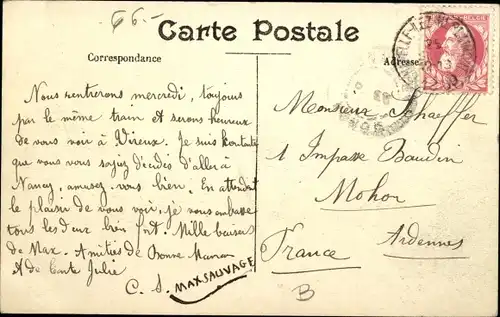 66.-
Carte Postale
Correspondance
Adresse
Nous rentrerons mercredi, toujours
par le même train et serons heureux
de vous voir à Vireux. Je suis contente
que vous vous soyiez décidés d'aller à
Nancy, amusez-vous bien. En attendant
le plaisir de vous voir, je vous embrasse
tous les deux bien fort. Mille baisers
de Max. Amitiés de Bonne Maman
& de tante Julie
C. S. MAX SAUVAGE
Monsieur Schaeffer
1 Impasse Baudin
Mohon
Ardennes
France
B